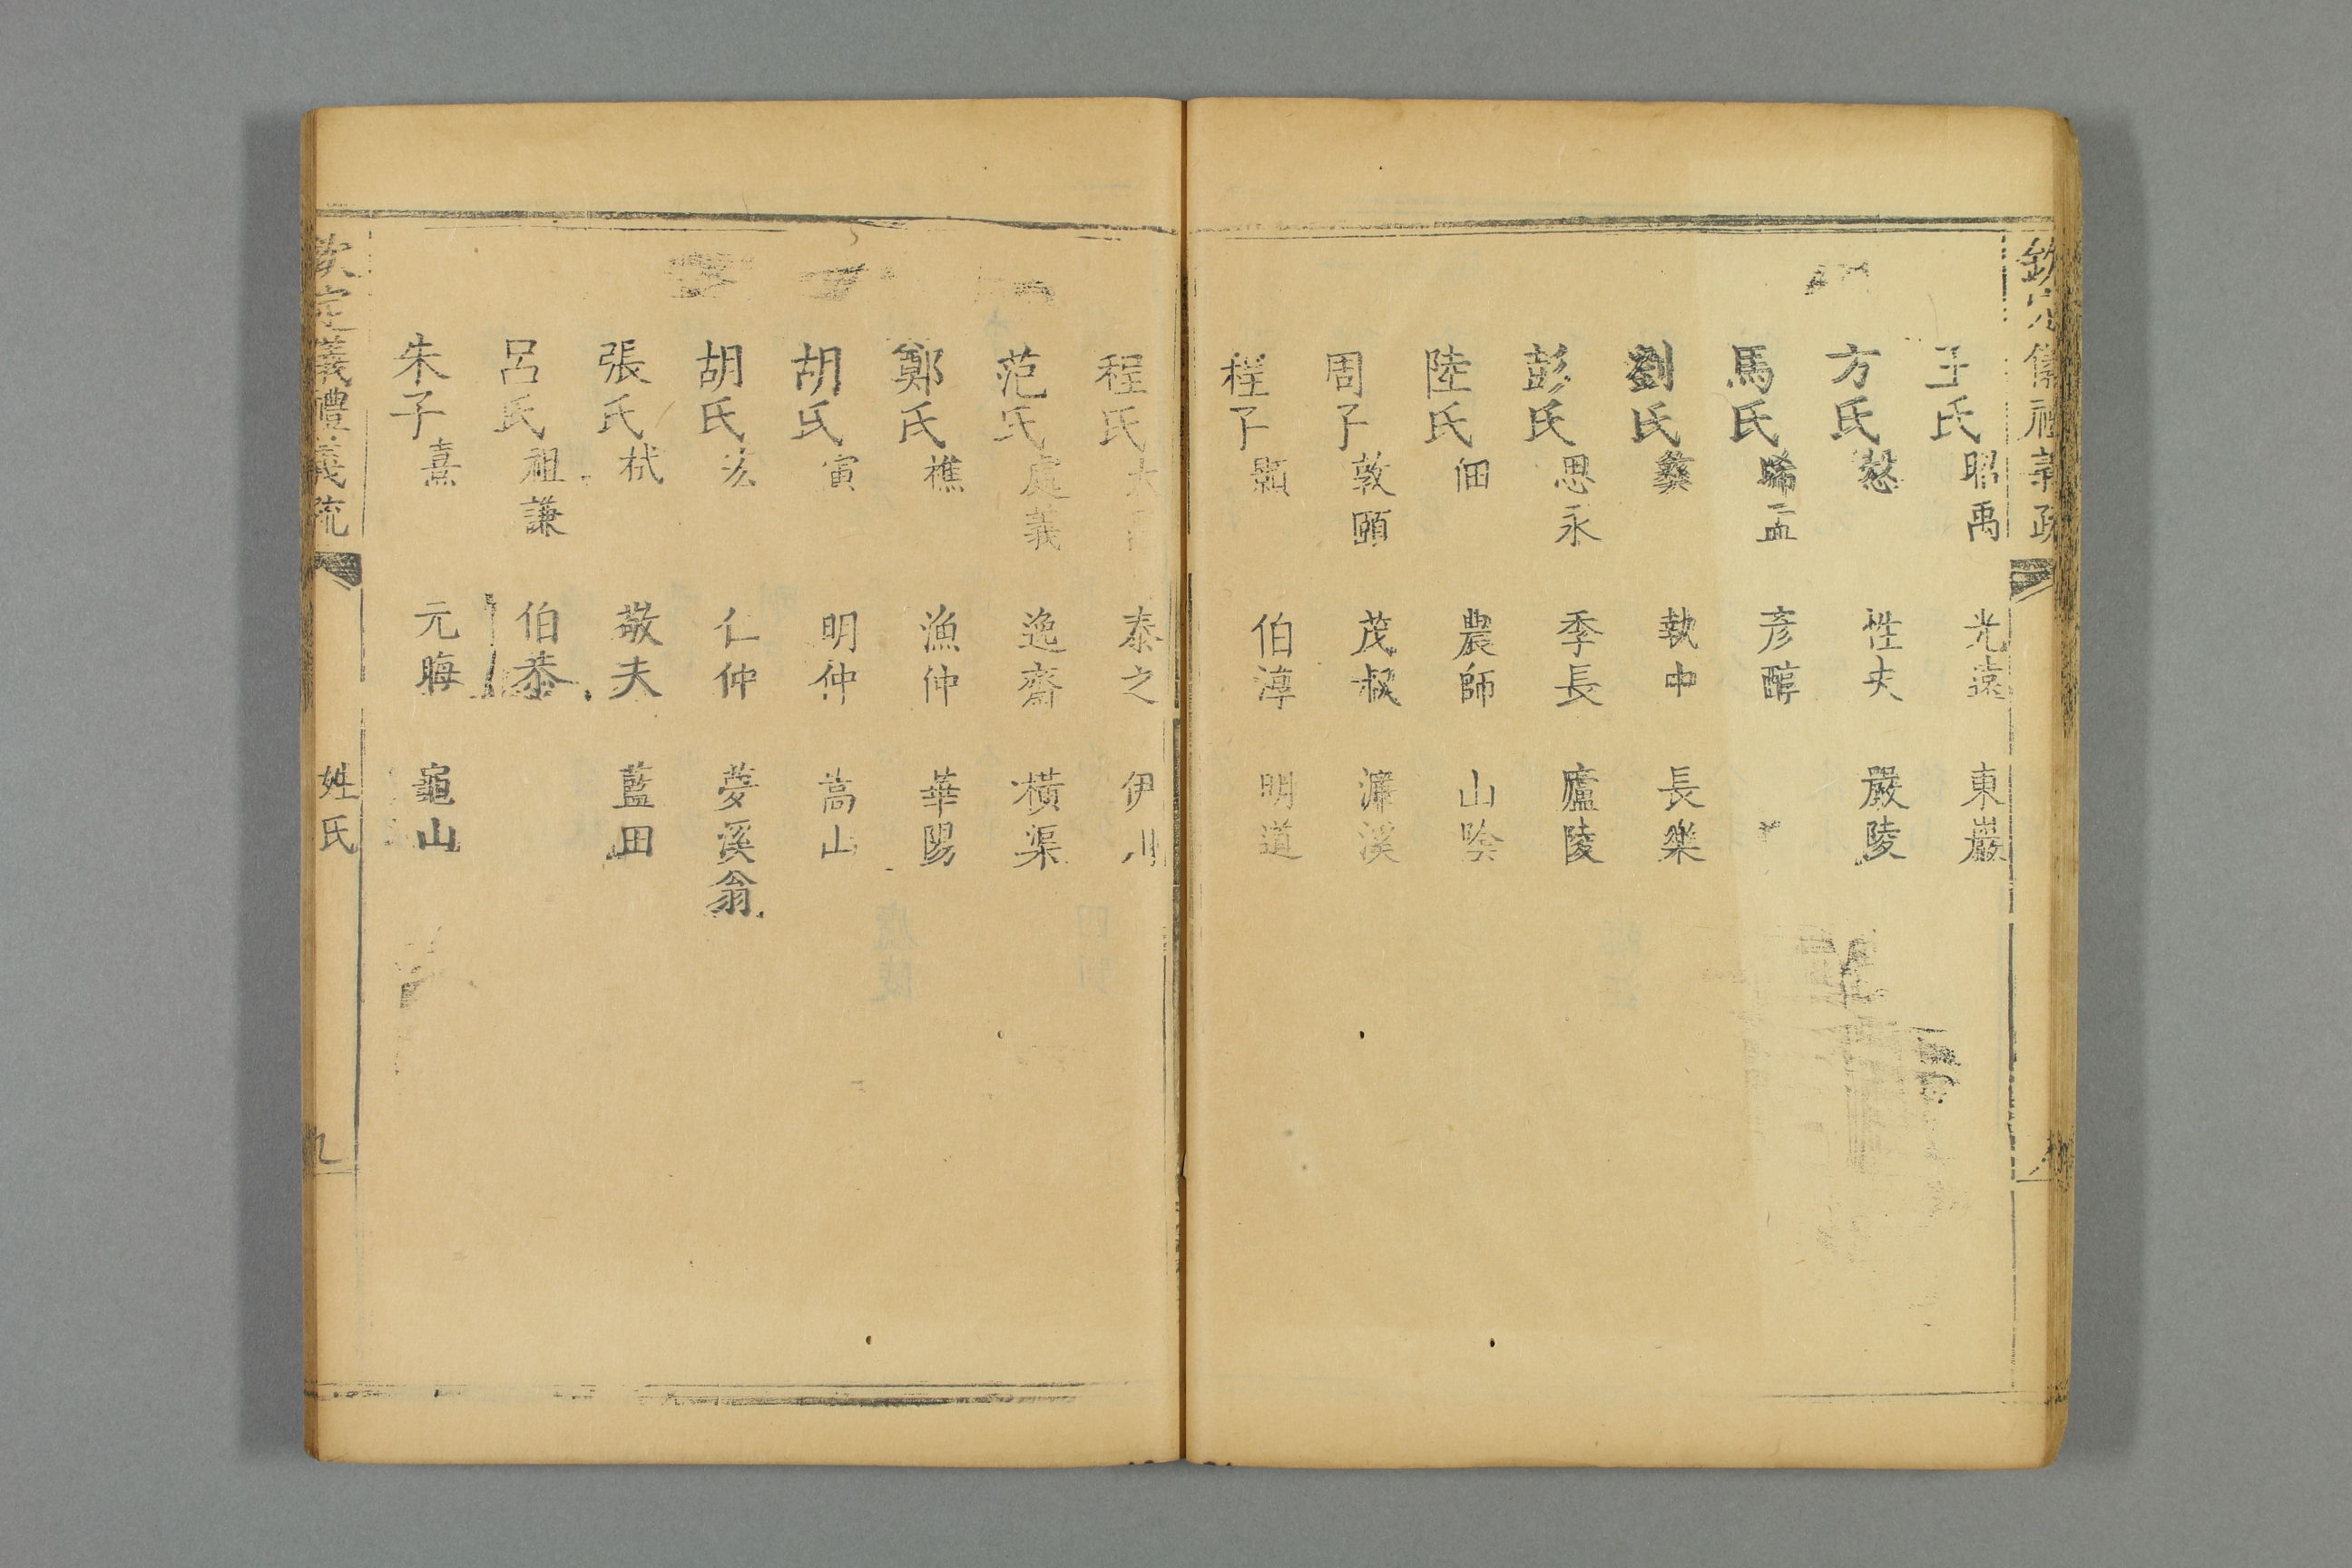 王氏 昭禹 光遠 東巖
方氏 愨 性夫 嚴陵
馬氏 晞孟 彥醇
劉氏 彝 執中 長樂
彭氏 思永 季長 廬陵
陸氏 佃 農師 山陰
周子 敦頤 茂叔 濂溪
程子 顥 伯淳 明道
程氏 大 泰之 伊川
范氏 處義 逸齋 橫渠
鄭氏 樵 漁仲 華陽
胡氏 寅 明仲 蒿山
胡氏 宏 仁仲 夢溪翁
張氏 栻 敬夫 藍田
呂氏 祖謙 伯恭
朱子 熹 元晦 龜山
欽定儀禮義疏 姓氏 九